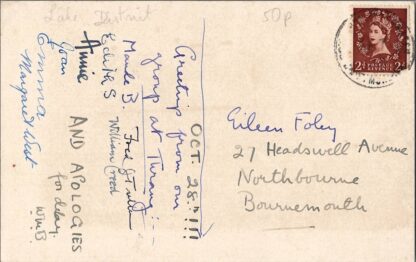 Lake District
50p
2d POSTAGE REVENUE 2d
OCT. 28th!!!
Greetings from our
group at
Maude B.
Edith S
William Creed
Annie
Joan
Emma
Margaret West
AND APOLOGIES
for delay.
WMB
Eileen Foley
27 Headswell Avenue
Northbourne
Bournemouth